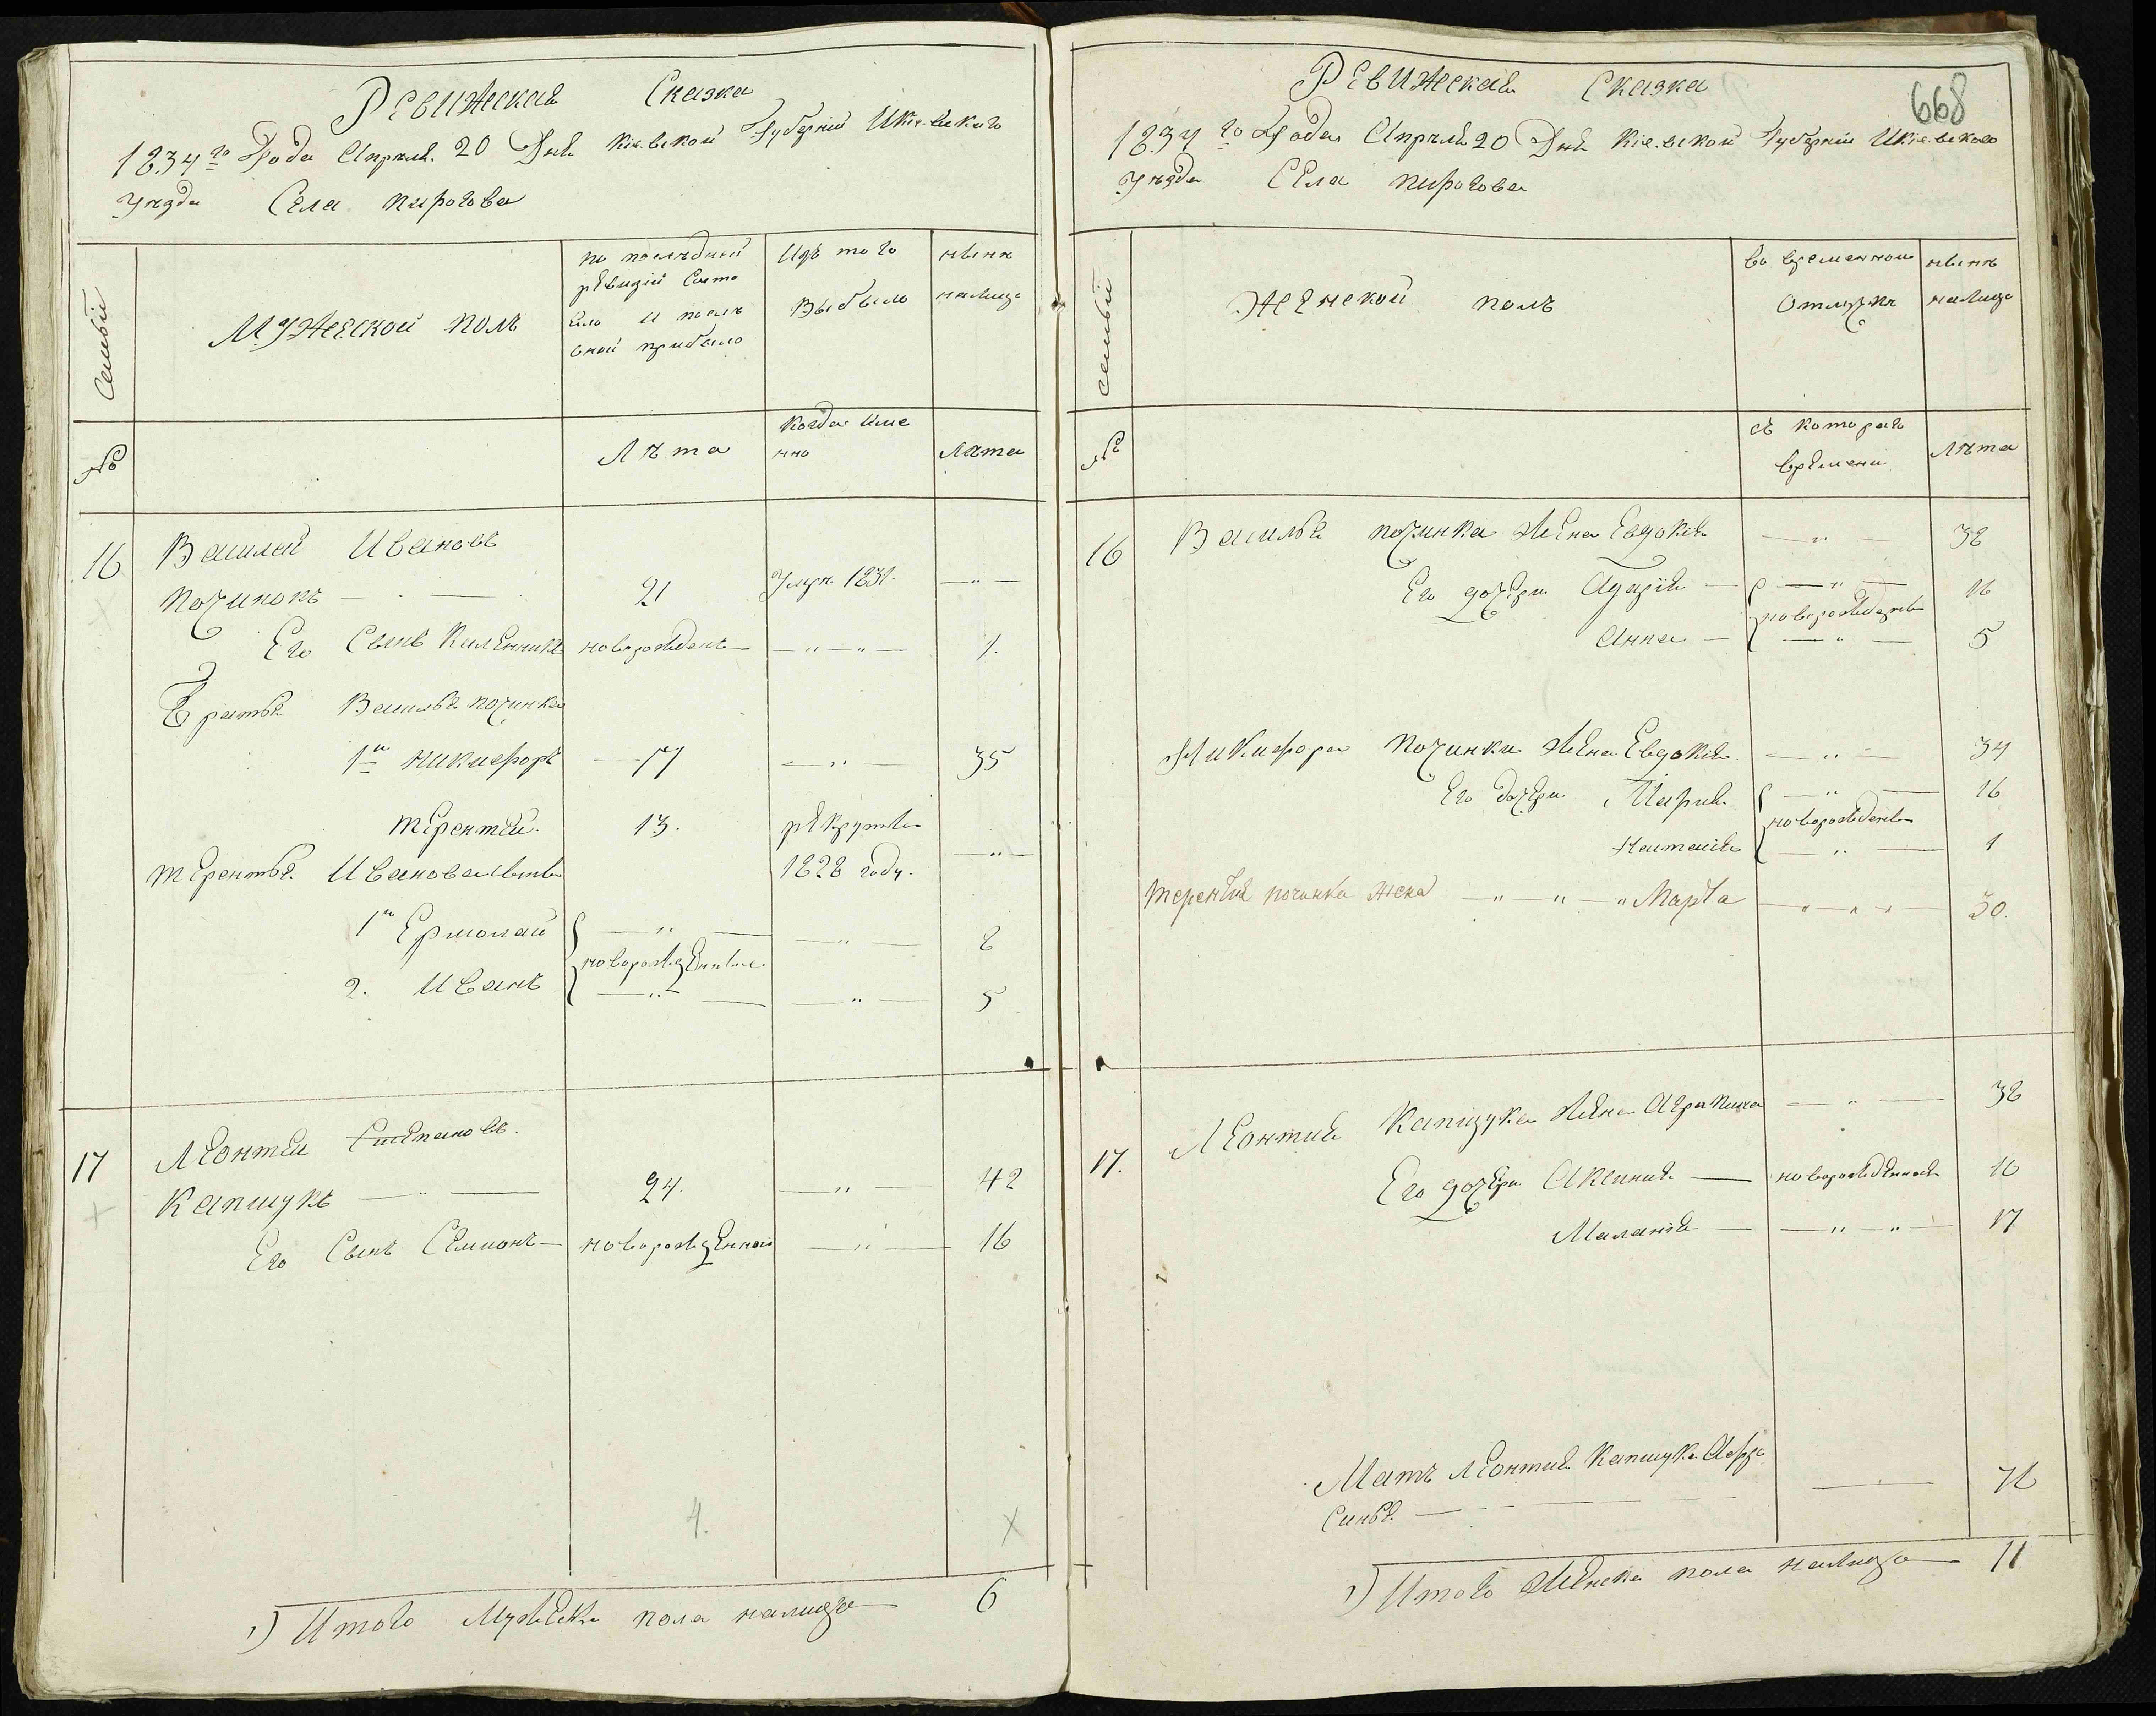 Ревижская Сказка
1834го Года Апреля 20 Дня Киевской Губернии И Киевскаго
Уезда Села Пирогова
Семьи
Мужеской полъ
по последней ревизии состояло и после оной прибыло
Изъ того выбыло
ныне налицо
№
Лета
Когда именно
Лета
16 Василей Ивановъ
Починокъ 21 Умре 1831.
Его Сынъ новорожденъ 1.
Братья Василья Починка
1й Никифоръ 17 35
Терентей 13. рекрутъ
1828 году.
Терентья Иванова сыновья
1й Ермолай 8
новорожденные
2. Иванъ 5
17 Леонтей Степановъ.
Капшукъ 24. 42
Его Сынъ Семионъ новорожденной 16
4. х
1) Итого Мужеска пола налицо 6
668
Ревижская Сказка
1834го Года Апреля 20 Дня Киевской Губернии И Киевскаго
Уезда Села Пирогова
семьи
Женской полъ
во временной отлучке
ныне налицо
№
съ котораго времени
Лета
16 Василья Починка Жена Евдокия 38
Его дочери 16
новорожденые
Анна 5
Никифора Починки Жена Евдокия 34
Его дочери Мария 16
новорожденые
Наталия 1
Терентия починка жена Марfа 30.
17. Леонтия Капшука Жена 38
Его дочери Аксиния новорожденная 16
Мелания 17
Мать Леонтия Капшука Афро
синья 76
1) Итого Женска пола налицо 11